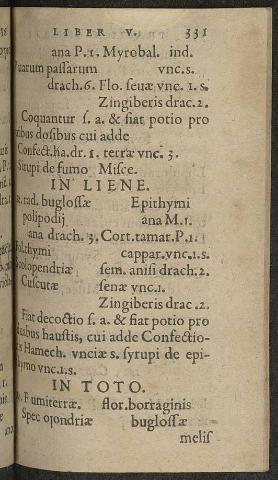 LIBER V. 331
ana P.1. Myrobal. ind.
Vuarum passarum vnc.s.
drach.6. Flo. senæ vnc. 1.s.
Zingiberis drac.2.
Coquantur s. a. & fiat potio pro
tribus dosibus cui adde
Confect.ha.dr. 1. terræ vnc. 3.
Sirupi de fumo Misce.
IN LIENE.
rad. buglossæ Epithymi
polipodij ana M.1.
ana drach. 3. Cort.tamar.P.1.
cappar.vnc.1.s.
Scolopendriæ sem. anisi drach.2.
Cuscutæ senæ vnc.1.
Zingiberis drac.2.
Fiat decoctio s. a. & fiat potio pro
haustis, cui adde Confectio-
nis Hamech. vnciæ s. syrupi de epi-
thymo vnc.1.s.
IN TOTO.
Fumiterræ. flor.borraginis
buglossæ
melis